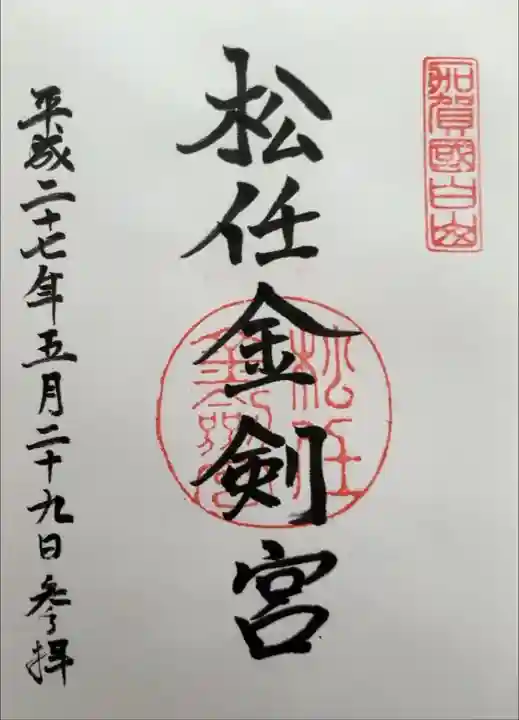 加賀國白山
松任金剣宮
松任
金剱宮
平成二十七年五月二十九日参拝